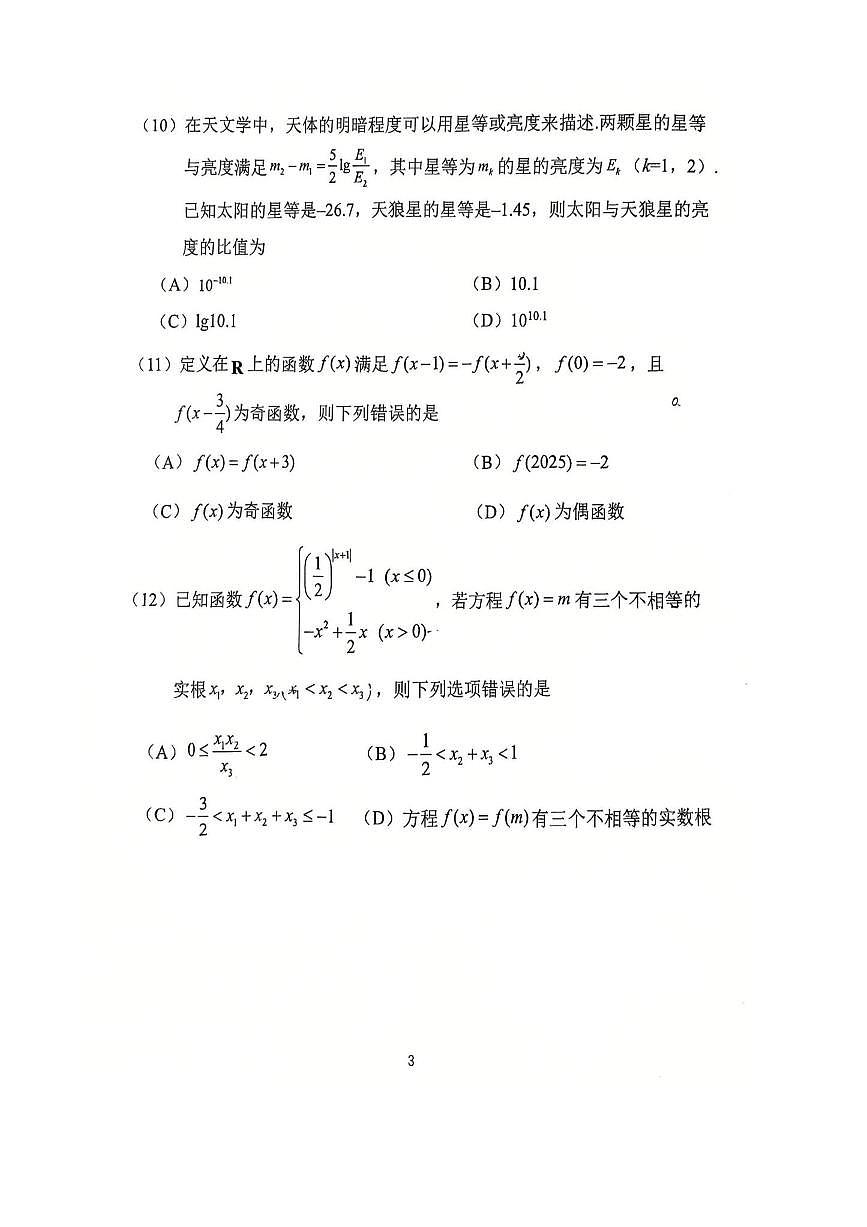 (10) 在天文学中，天体的明暗程度可以用星等或亮度来描述.两颗星的星等
与亮度满足 m₂-m₁=5/2 lg E₁/E₂，其中星等为 mₖ 的星的亮度为 Eₖ (k=1，2).
已知太阳的星等是-26.7，天狼星的星等是-1.45，则太阳与天狼星的亮
度的比值为
(A) 10^-10.1 (B) 10.1
(C) lg10.1 (D) 10^10.1
(11) 定义在 R 上的函数 f(x) 满足 f(x-1)=-f(x+ /2)，f(0)=-2，且
f(x-3/4) 为奇函数，则下列错误的是
(A) f(x)=f(x+3) (B) f(2025)=-2
(C) f(x) 为奇函数 (D) f(x) 为偶函数
(12) 已知函数 f(x)={(1/2)^|x+1| -1 (x≤0)
-x²+1/2 x (x>0)，若方程 f(x)=m 有三个不相等的
实根 x₁，x₂，x₃(x₁<x₂<x₃)，则下列选项错误的是
(A) 0≤x₁x₂/x₃<2 (B) -1/2<x₂+x₃<1
(C) -3/2<x₁+x₂+x₃≤-1 (D) 方程 f(x)=f(m) 有三个不相等的实数根
3